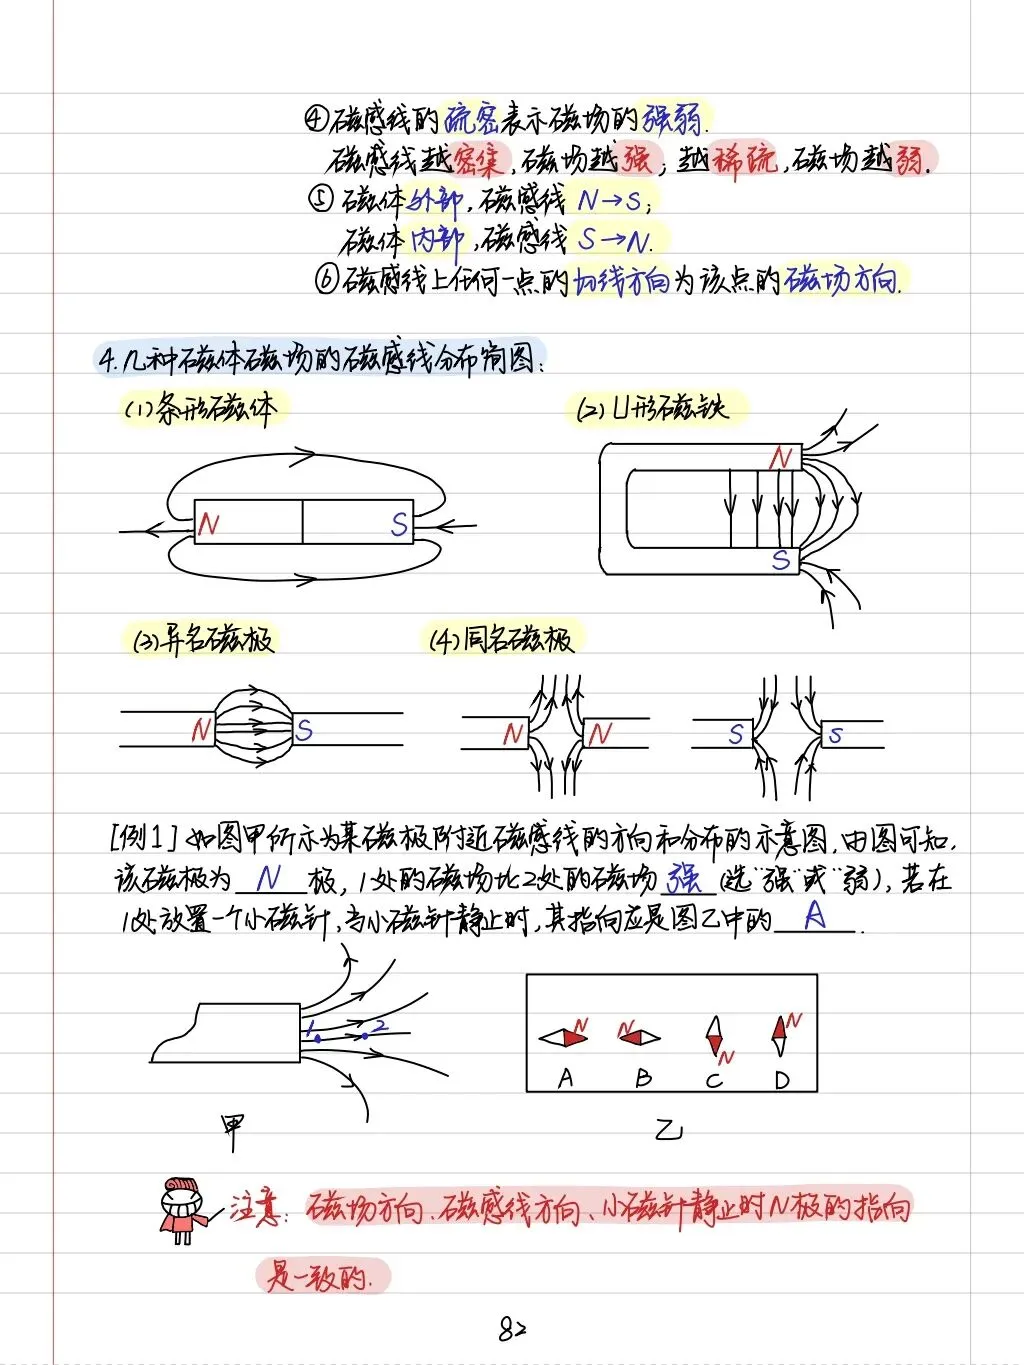 ④磁感线的疏密表示磁场的强弱.
磁感线越密集,磁场越强;越稀疏,磁场越弱.
⑤磁体外部,磁感线 N→S;
磁体内部,磁感线 S→N.
⑥磁感线上任何一点的切线方向为该点的磁场方向.
4.几种磁体磁场的磁感线分布简图:
(1)条形磁体
(2)U形磁铁
N S
N
S
(3)异名磁极
(4)同名磁极
N S
N N
S S
[例1]如图甲所示为某磁极附近磁感线的方向和分布的示意图,由图可知,
该磁极为 N 极,1处的磁场比2处的磁场 强 (选"强"或"弱"),若在
1处放置一个小磁针,当小磁针静止时,其指向应是图乙中的 A .
1 2
N N N N
A B C D
甲
乙
注意:磁场方向、磁感线方向、小磁针静止时N极的指向
是一致的.
82